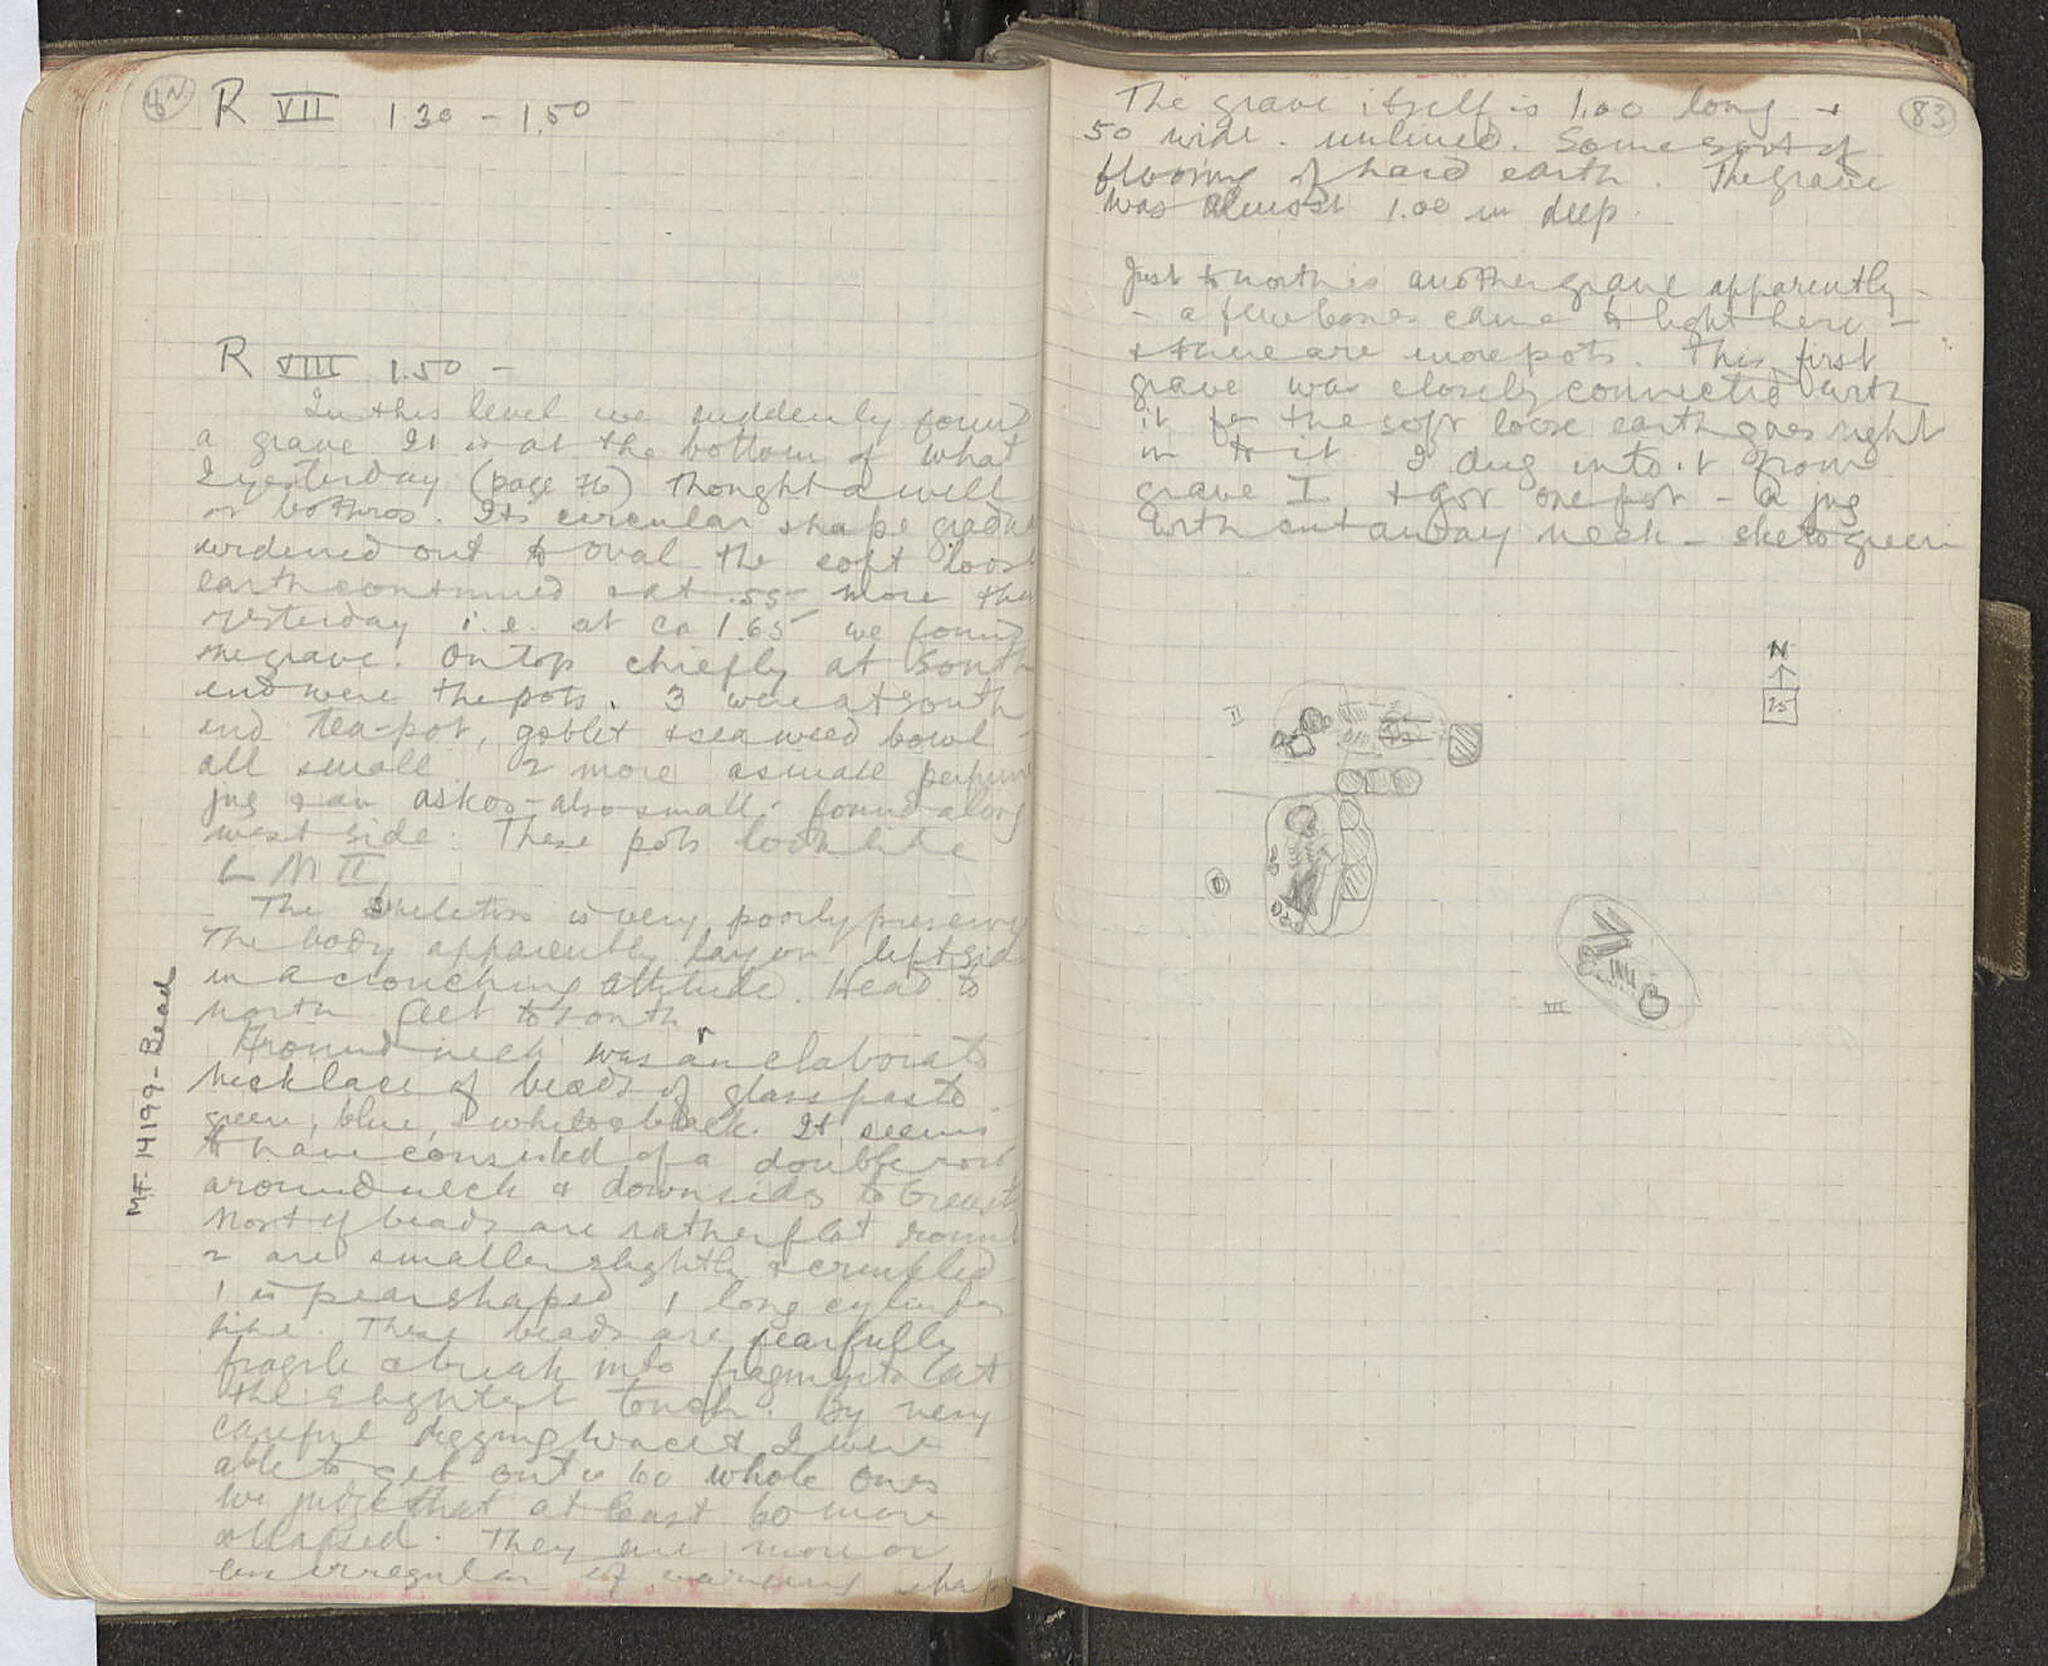 R VII 1.30 - 1.50
R VIII 1.50 -
In this level we suddenly found
a grave It is at the bottom of what
I yesterday (page 76) thought a well
or bothros. Its circular shape gradu
widened out to oval the soft loose
earth continued & at .55 more than
yesterday i.e. at ca 1.65 we found
the grave. On top chiefly at South
end were the pots. 3 were at south
end tea-pot, goblet & seaweed bowl -
all small. 2 more a small perfume
jug & an askos - also small - found along
west side. These pots look like
L M II.
- The skeleton is very poorly preserved
The body apparently lay on left side
in a crouching attitude. Head to
north feet to south.
Around neck was an elaborate
necklace of beads of glass paste -
green, blue, & white & black. It seems
to have consisted of a double row
around neck & down sides to breast
Most of beads are rather flat round
2 are smaller slightly & crinkled
1 is pear shaped 1 long cylinder
like. These beads are fearfully
fragile & break into fragments at
the slightest touch. By very
careful digging Wace & I were
able to get out 60 whole ones
We judge that at least 60 more
collapsed. They are more or
less irregular & of varying shape
MF 14199 - Bead
83
The grave itself is 1.00 long &
50 wide. unlined. Some sort of
flooring of hard earth. The grave
was almost 1.00 m deep.
Just to north is another grave apparently -
- a few bones came to light here -
& there are more pots. This first
grave was closely connected with
it for the soft loose earth goes right
in to it I dug into it from
grave I & got one pot - a jug
with cut away neck -
N
25
II
I
III